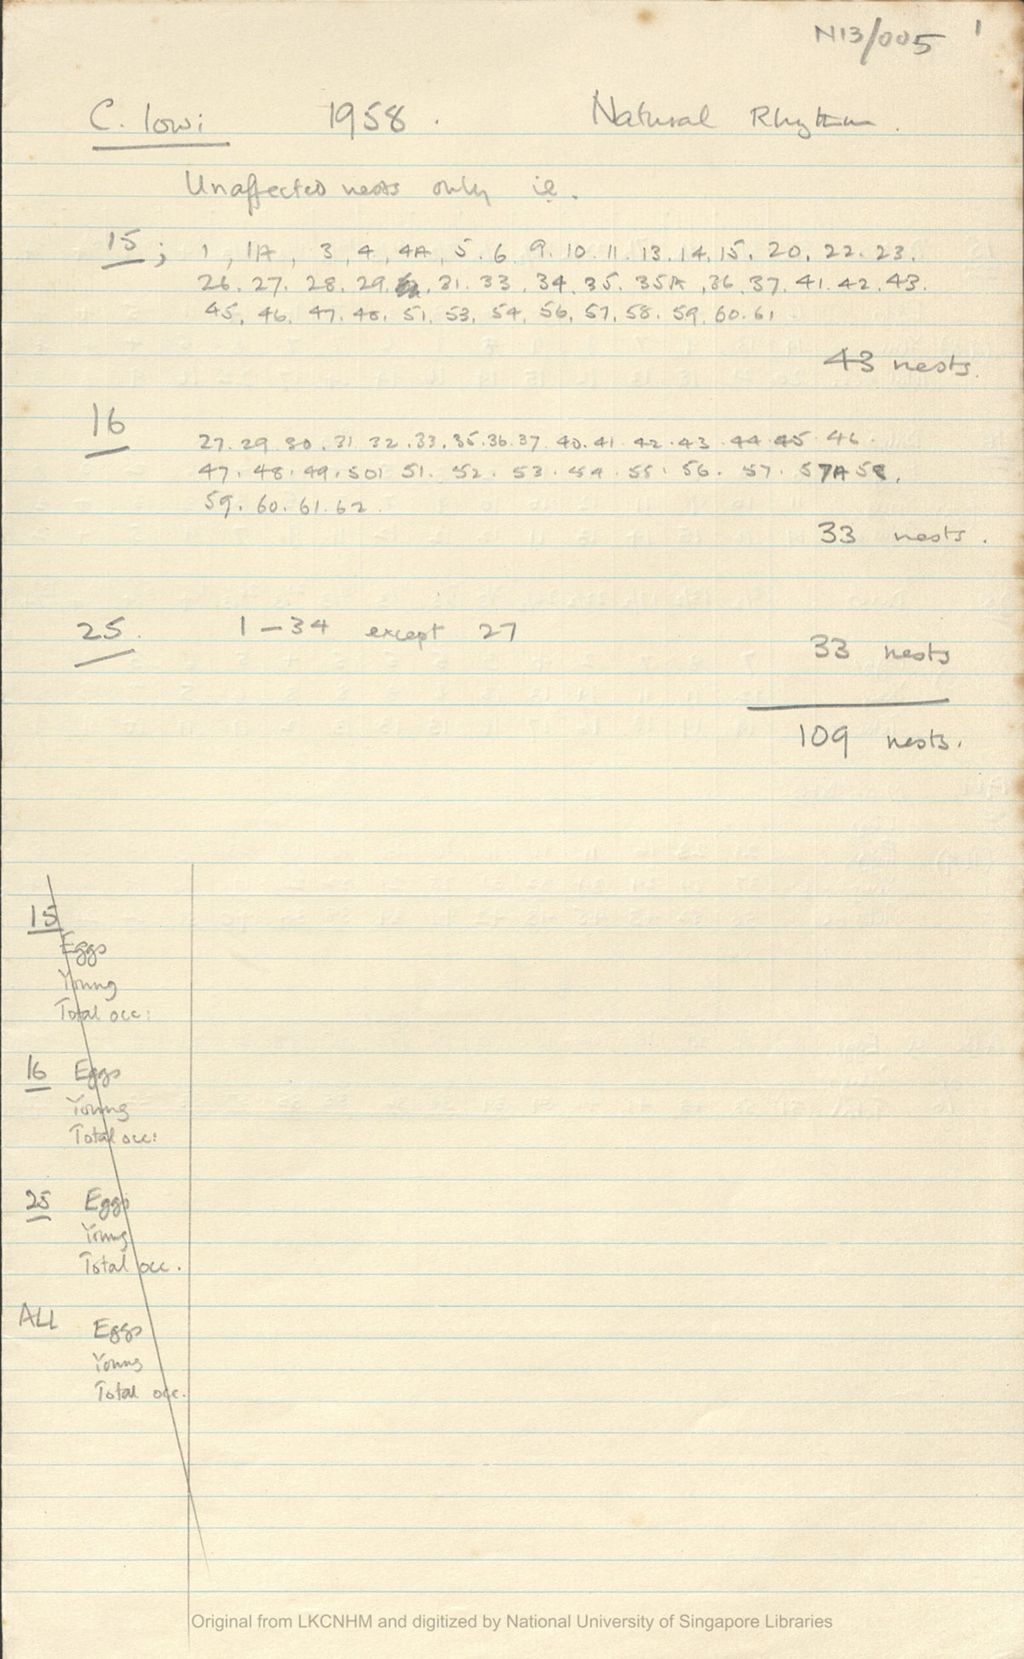 N13/005 1
C. lowi 1958. Natural Rhythm.
Unaffected nests only ie.
15; 1, 1A, 3, 4, 4A, 5. 6, 9. 10. 11. 13. 14. 15. 20. 22. 23.
26. 27. 28. 29. 31. 33. 34. 35. 35A, 36. 37. 41. 42. 43.
45, 46, 47. 48. 51. 53, 54, 56, 57, 58. 59, 60. 61.
43 nests.
16 27. 29. 30. 31. 32. 33. 35. 36. 37. 40. 41. 42. 43. 44. 45. 46.
47. 48. 49. 50. 51. 52. 53. 54. 55. 56. 57. 57A 58.
59. 60. 61. 62.
33 nests.
25. 1 – 34 except 27
33 nests
109 nests.
15
Eggs
Young
Total occ:
16 Eggs
Young
Total occ:
25 Eggs
Young
Total occ.
ALL Eggs
Young
Total occ.
Original from LKCNHM and digitized by National University of Singapore Libraries